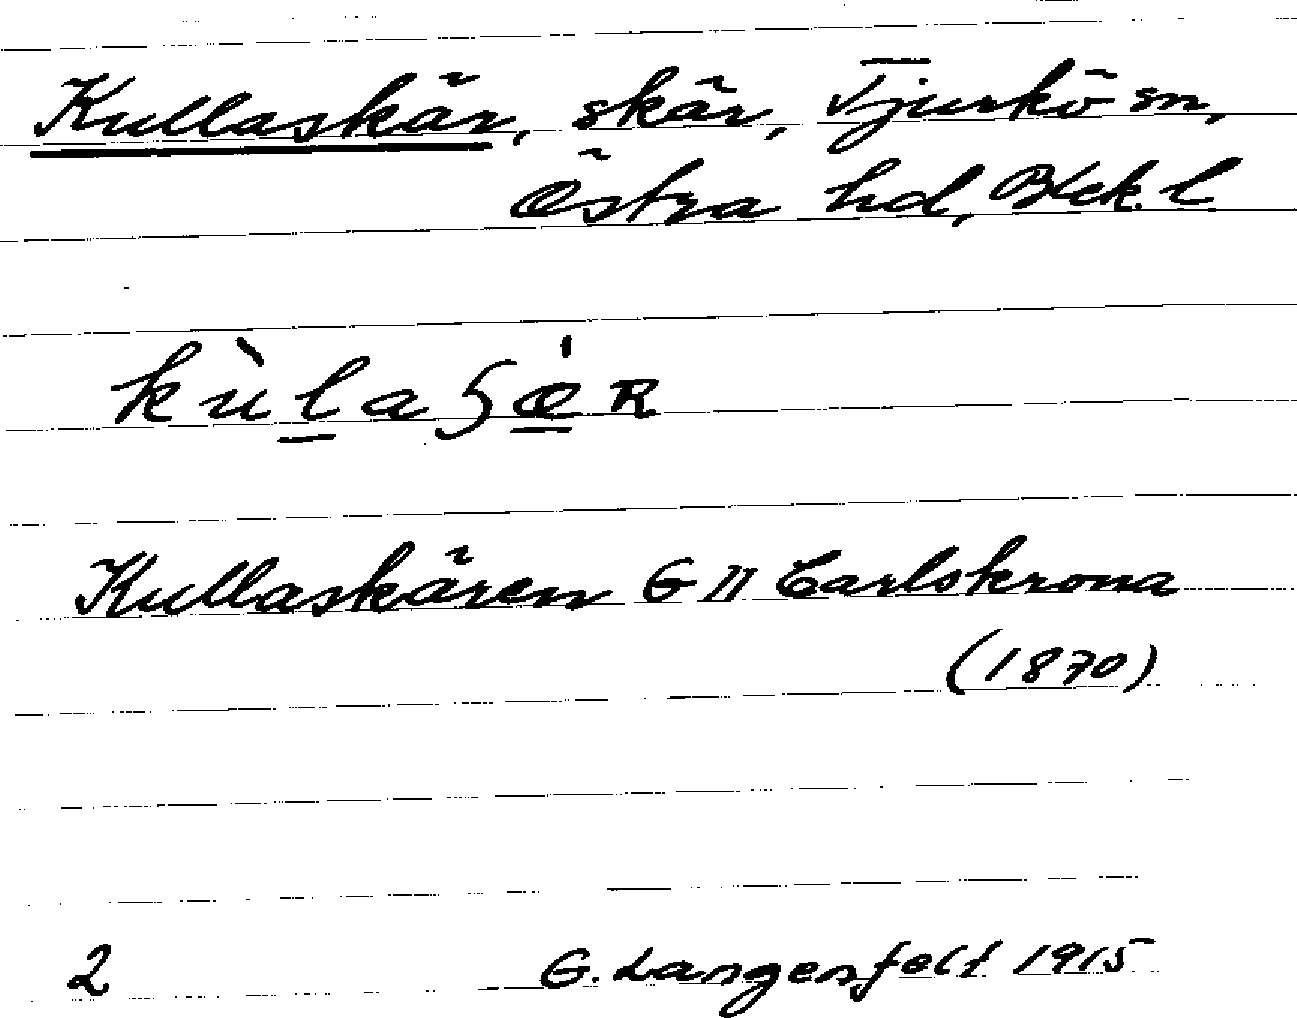 Kullaskär, skär, Tjurkö sn,
Östra hd, Blek. l
kùlaʂǿʀ
Kullaskären G II Carlskrona
(1870)
2 G. Langenfelt 1915